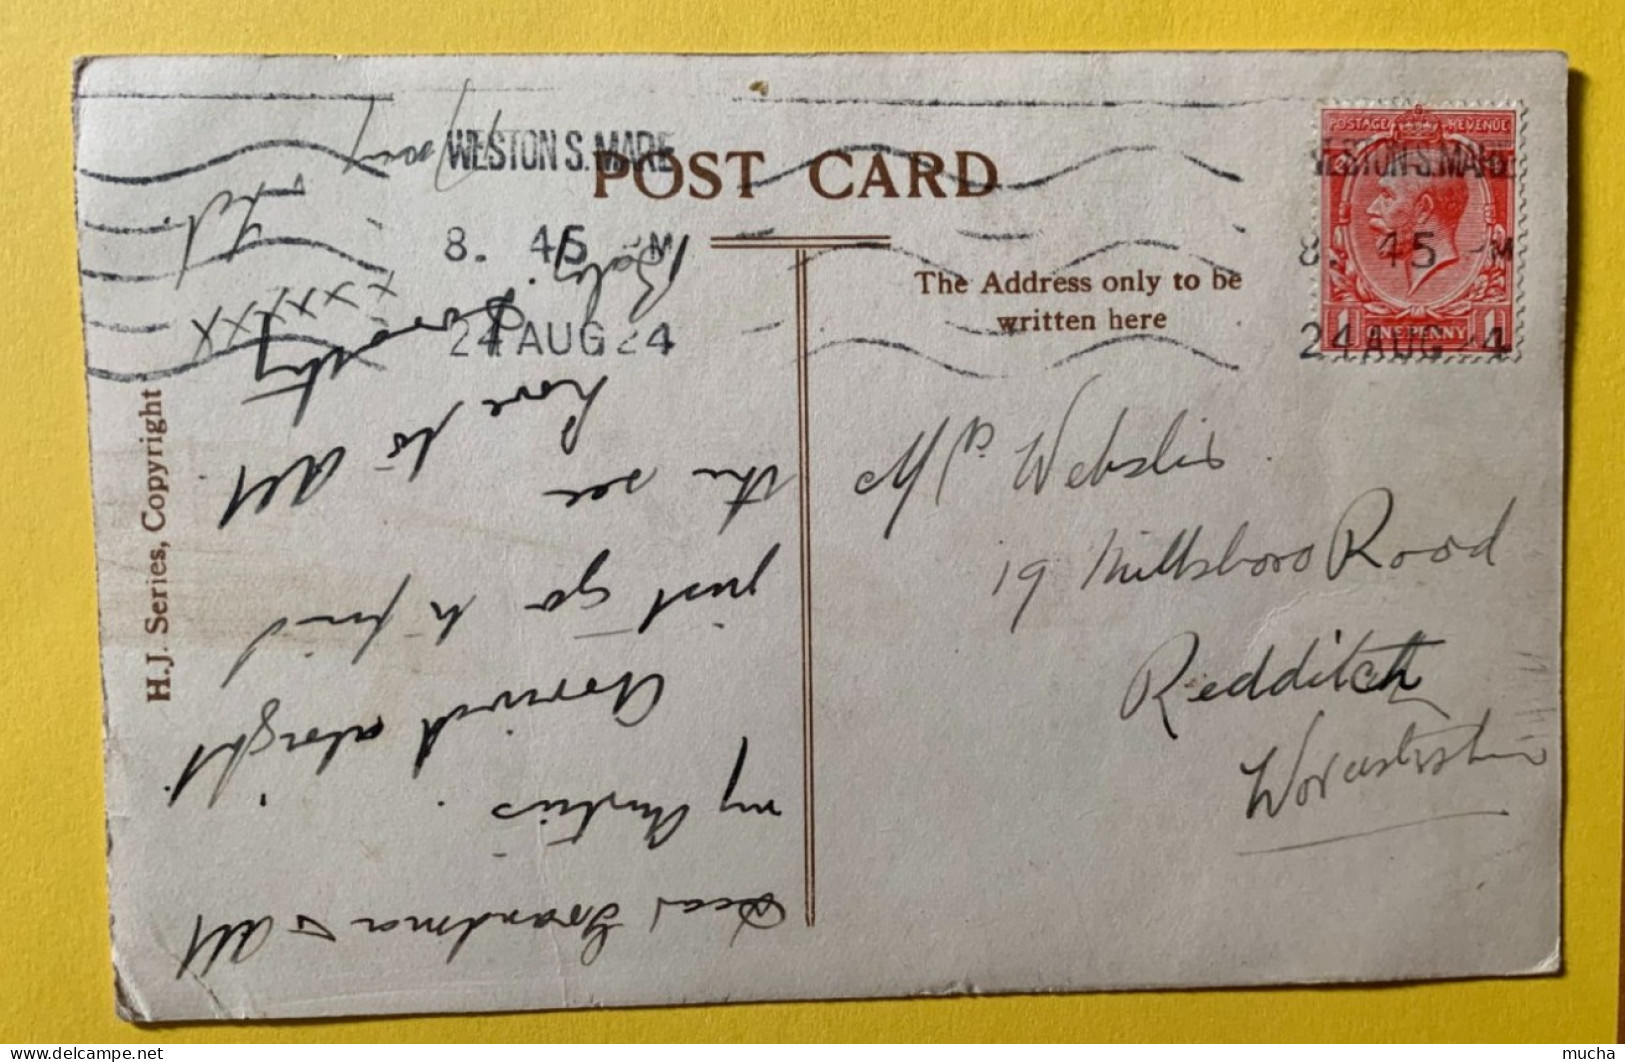 POST CARD
WESTON S. MARE
8. 45 PM
24 AUG 24
The Address only to be
written here
POSTAGE REVENUE
WESTON-S.MARE
8. 45 PM
24 AUG 24
1 ONE PENNY 1
H.J. Series, Copyright
Mrs Webster
19 Millsboro Road
Redditch
Worcestershire
Dear Grandma & All
my Aunties.
Arrived alright
just go to find
the sea
love to All
Dorothy
xxxxxxx
Baby.
Ted.
mucha